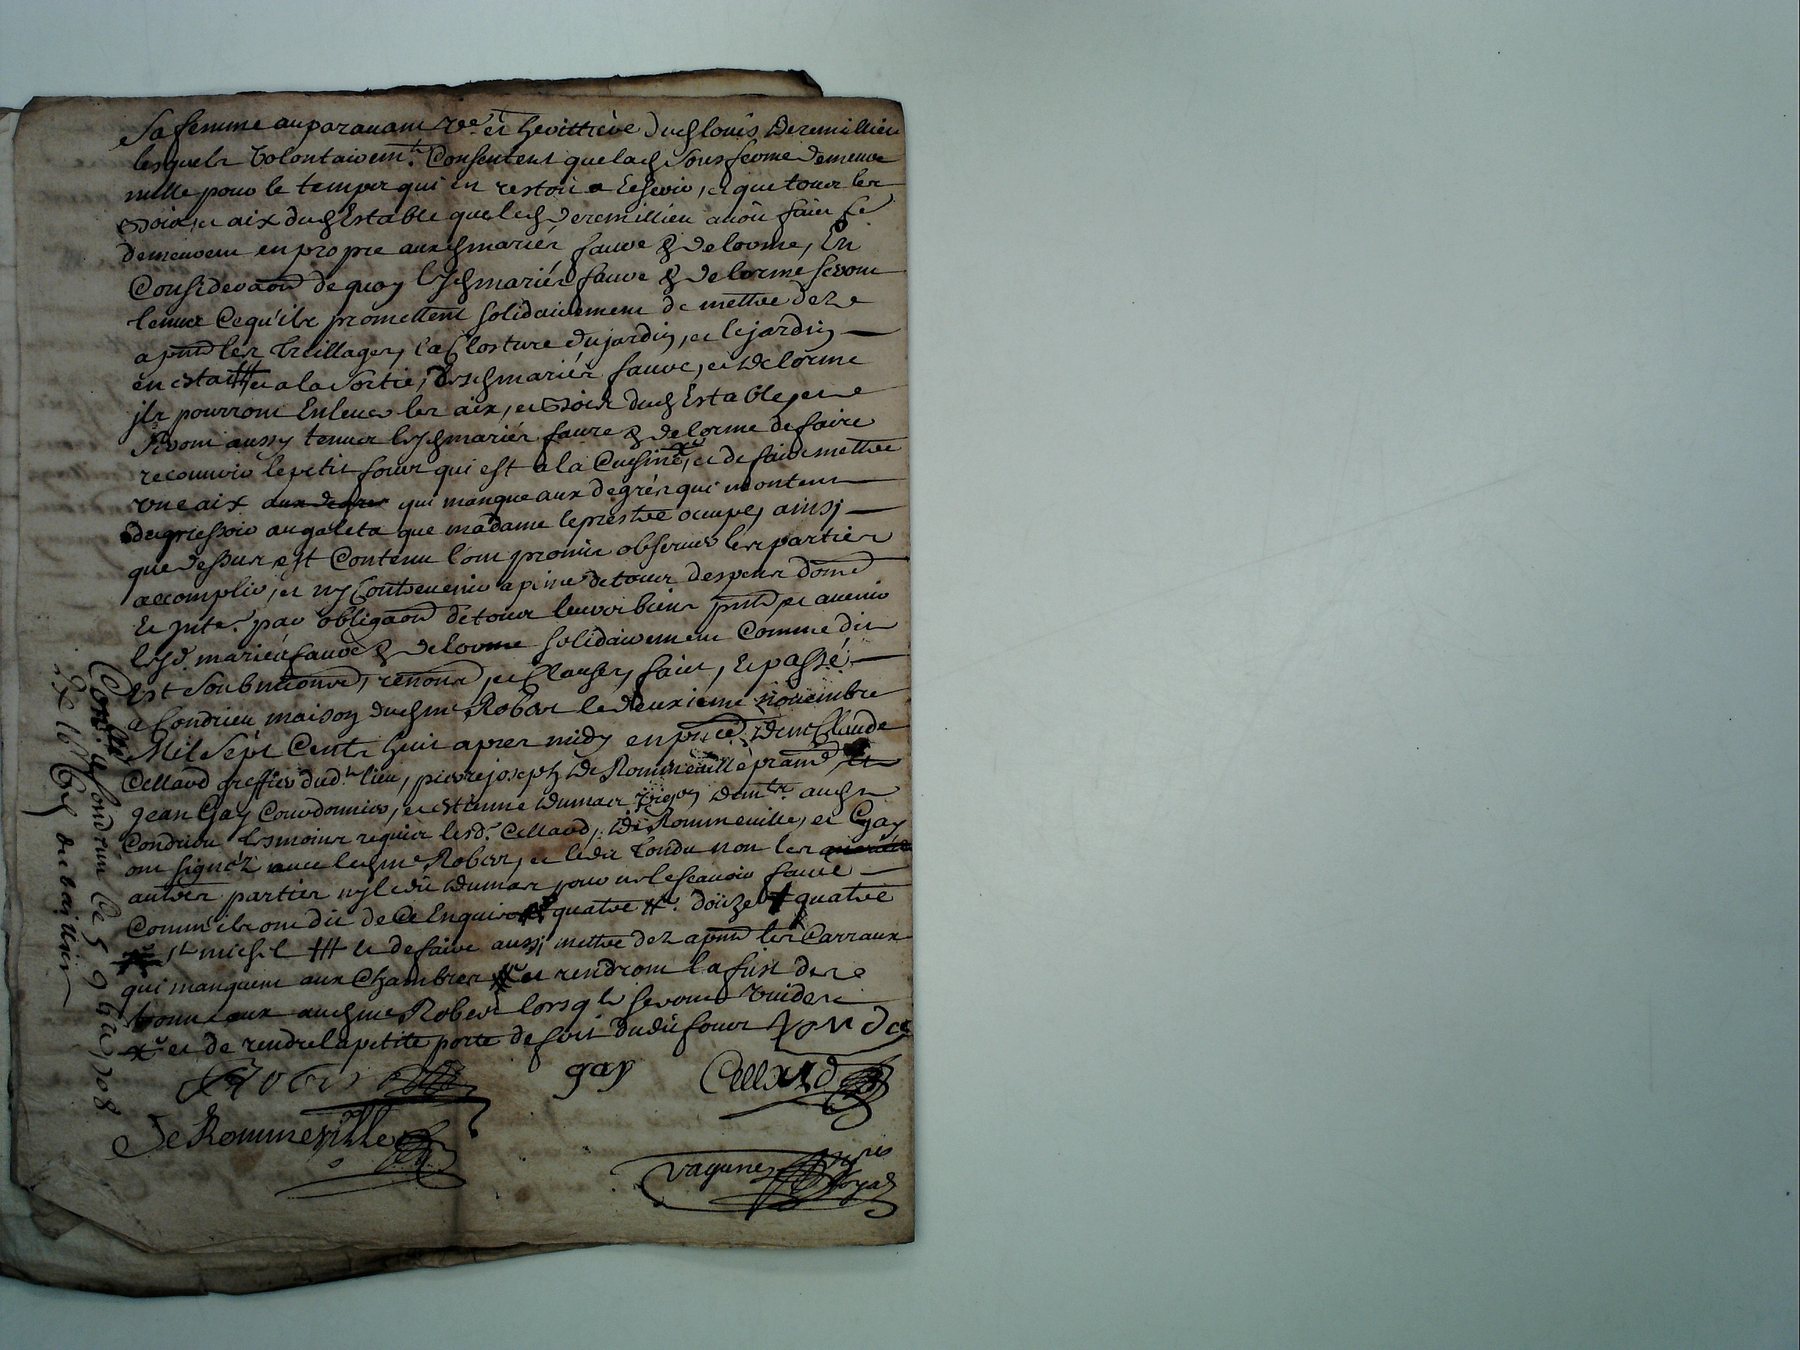 Sa femme auparavant vve et heritiere dud louis Deremillieu
lesquels volontairemt. Consentent que lad Sousferme demeure
nulle pour le temps qui en restoit a Escheoir, et que tous les
bois, et aix dud Estable que led Deremillieu avoit fait fe
demeurent en propre auxd mariés faure & delorme, En
Consideraon de quoy lesd mariés faure & delorme seront
tenus Ce qu'ils promettent solidairement de mettre deze
apnt les treillages, la Closture du jardin, et le jardin
en estat ₶ et a la Sortie, desd mariés faure, et Delorme
ils pourront Enlever les aix, et bois dud Estable, et
seront aussy tenus lesd mariés faure & delorme de faire
recouvrir le petit four qui est a la Cuisine, et de faire mettre
une aix aux degres qui manque aux degrés qui montent
du pressoir au galeta que madame leprestre occupe, ainsi
que dessus est Contenu l'ont promis observer les parties
accomplir, et ny Contrevenir a peine de tous despens dom
Et intes. par obligaon de tous leurs biens pnts et avenir
lesd. mariés faure & delorme solidairement Comme dit
Est Soubmions, renons, et Clauses, fait, Et passé
a Condrieu maison dud me Rober le deuxieme novembre
Mil Sept Cents huit apres midy en pnce de me Claude
Cellard greffier dud lieu, pierre joseph De Rommeville prat, Et
Jean Gay Courdonnier, et Estienne Dumas demts. aud
Condrieu tesmoins requis lesd. Cellard, De Rommeville, et Gay
ont signéz avec led me Rober, et ledit Tondu non les
autres parties ny ledit Dumas pour ne le scavoir faire
Comm'ils ont dit de Ce Enquis quatre ₶. douze quatre
st michel ₶ et de faire aussi mettre dez apnt les Carraux
qui manquent aux Chambres et rendront la fust des
tonneaux aud me Rober lorsqls seront vuides
et de rendre la petite porte de fert dudit four Tondu
Rober
gay
Cellard
De Rommeville
vagune
Nore Royal
Conllé a Condrieu le 5 9bre 1708